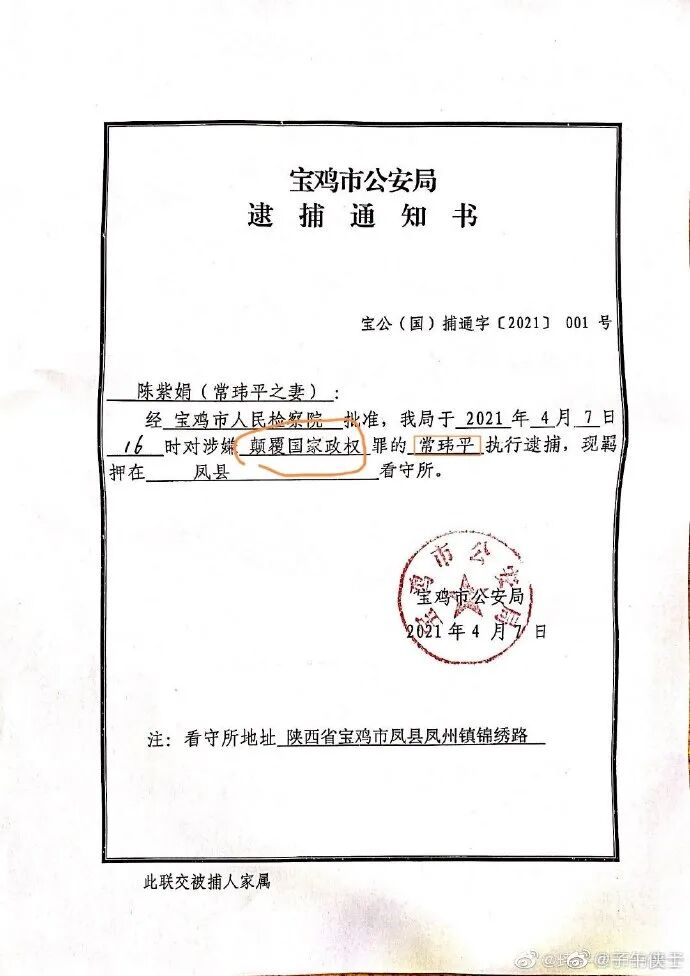 宝鸡市公安局
逮捕通知书
宝公(国)捕通字〔2021〕001号
陈紫娟(常玮平之妻):
经 宝鸡市人民检察院 批准,我局于 2021 年 4 月 7 日
16 时对涉嫌 颠覆国家政权 罪的 常玮平 执行逮捕,现羁
押在 凤县 看守所。
宝鸡市公安局
宝鸡市公安局
2021年4月7日
注:看守所地址 陕西省宝鸡市凤县凤州镇锦绣路
此联交被捕人家属
@子牛侠士